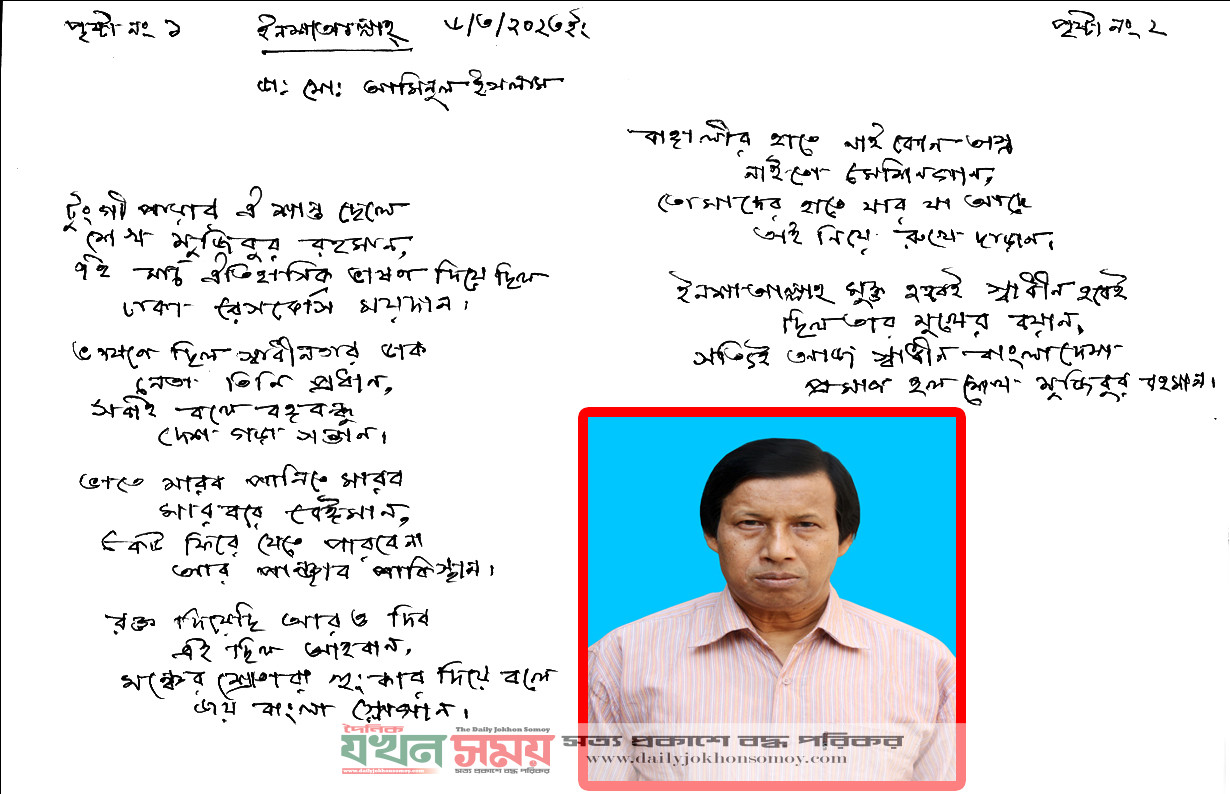 পৃষ্টা নং ১
ইনশাআল্লাহ্ ৮/৩/২০২৩ইং
ডা: মো: আমিনুল ইসলাম
টুংগী পাড়ার ঐ শান্ত ছেলে
শেখ মুজিবুর রহমান,
৭ই মার্চ ঐতিহাসিক ভাষণ দিয়ে ছিল
ঢাকা রেসকোর্স ময়দান।
ভাষণে ছিল স্বাধীনতার ডাক
নেতা তিনি প্রধান,
সবাই বলে বঙ্গবন্ধু
দেশ গড়া সন্তান।
ভাতে মারব পানিতে মারব
মারবরে বেঈমান,
একটি ফিরে যেতে পারবেনা
আর পাঞ্জাব পাকিস্থান।
রক্ত দিয়েছি আরও দিব
এই ছিল আহবান,
মঞ্চের শ্রোতারা হুংকার দিয়ে বলে
জয় বাংলা স্লোগান।
পৃষ্টা নং ২
বাঙ্গালীর হাতে নাই কোন অস্ত্র
নাইতো মেশিনগান,
তোমাদের হাতে যার যা আছে
তাই নিয়ে রুখে দাড়ান।
ইনশাআল্লাহ মুক্ত হবেই স্বাধীন হবেই
ছিল তার মুখের বয়ান,
সত্যিই আজ স্বাধীন বাংলাদেশ
প্রমাণ হল শেখ মুজিবুর রহমান।
দৈনিক
The Daily Jokhon Somoy
যখন সময়
www.dailyjokhonsomoy.com
সত্য প্রকাশে বদ্ধ পরিকর
সত্য প্রকাশে বদ্ধ পরিকর
www.dailyjokhonsomoy.com